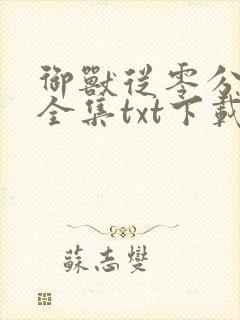 御獸從零分
全集txt下載
蘇志燮